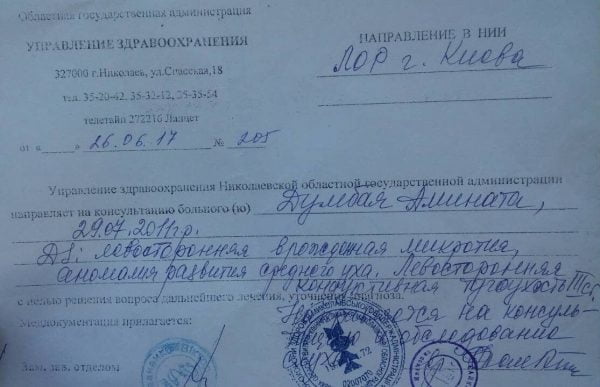 Областная государственная администрация
УПРАВЛЕНИЕ ЗДРАВООХРАНЕНИЯ
327000 г.Николаев, ул.Спасская,18
тел. 35-20-42, 35-32-12, 35-35-54
телетайп 272216 Ланцет
от « » 26.06.17 № 205
НАПРАВЛЕНИЕ В НИИ
ЛОР г. Киова
Управление здравоохранения Николаевской областной государственной администрации
направляет на консультацию больного (ю) Думбая Амината,
29.07.2011г.р.
DS: левосторонняя врожденная микротия,
аномалия развития среднего уха. Левосторонняя
кондуктивная тугоухость III ст.
с целью решения вопроса дальнейшего лечения, уточнения диагноза.
на консуль-
Меддокументация прилагается:
обследование
Зам. зав. отделом